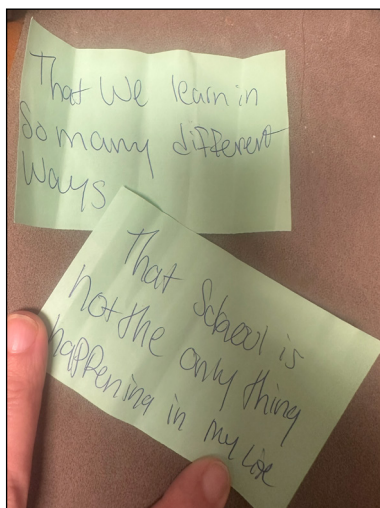 That We learn in
So many different
Ways
That School is
not the only thing
happening in my life